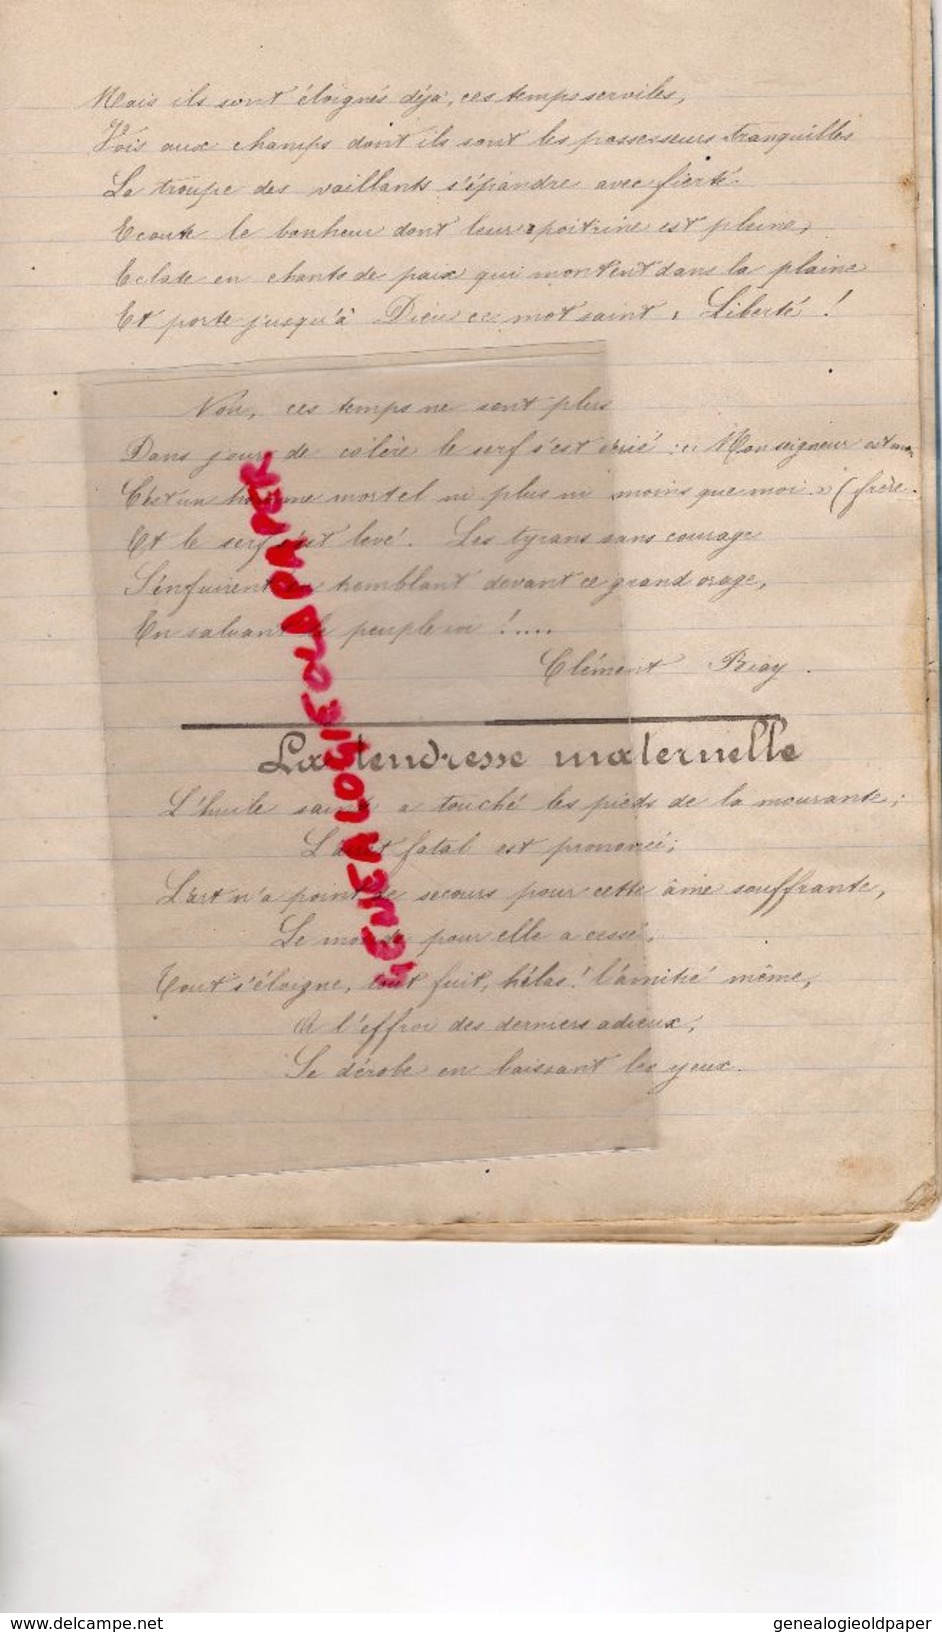 Mais ils sont éloignés déjà, ces temps serviles,
Vois aux champs dont ils sont les possesseurs tranquilles
La troupe des vaillants s'épandre avec fierté.
Ecoute le bonheur dont leur poitrine est pleine,
Eclate en chants de paix qui montent dans la plaine
Et porte jusqu'à Dieu ce mot saint, Liberté !
Non, ces temps ne sont plus
Dans jours de colère le serf s'est écrié : « Monseigneur est mon
C'est un homme mortel ni plus ni moins que moi » (frère.
Et le serf s'est levé. Les tyrans sans courage
S'enfuirent en tremblant devant ce grand orage,
En saluant le peuple roi !....
Clément
La tendresse maternelle
L'huile sainte a touché les pieds de la mourante ;
L'arrêt fatal est prononcé ;
L'art n'a point de secours pour cette âme souffrante,
Le monde pour elle a cessé.
Tout s'éloigne, tout fuit, hélas ! l'amitié même,
A l'effroi des derniers adieux,
Se dérobe en baissant les yeux.
GENEALOGIEOLDPAPER
delcampe.net
genealogieoldpaper